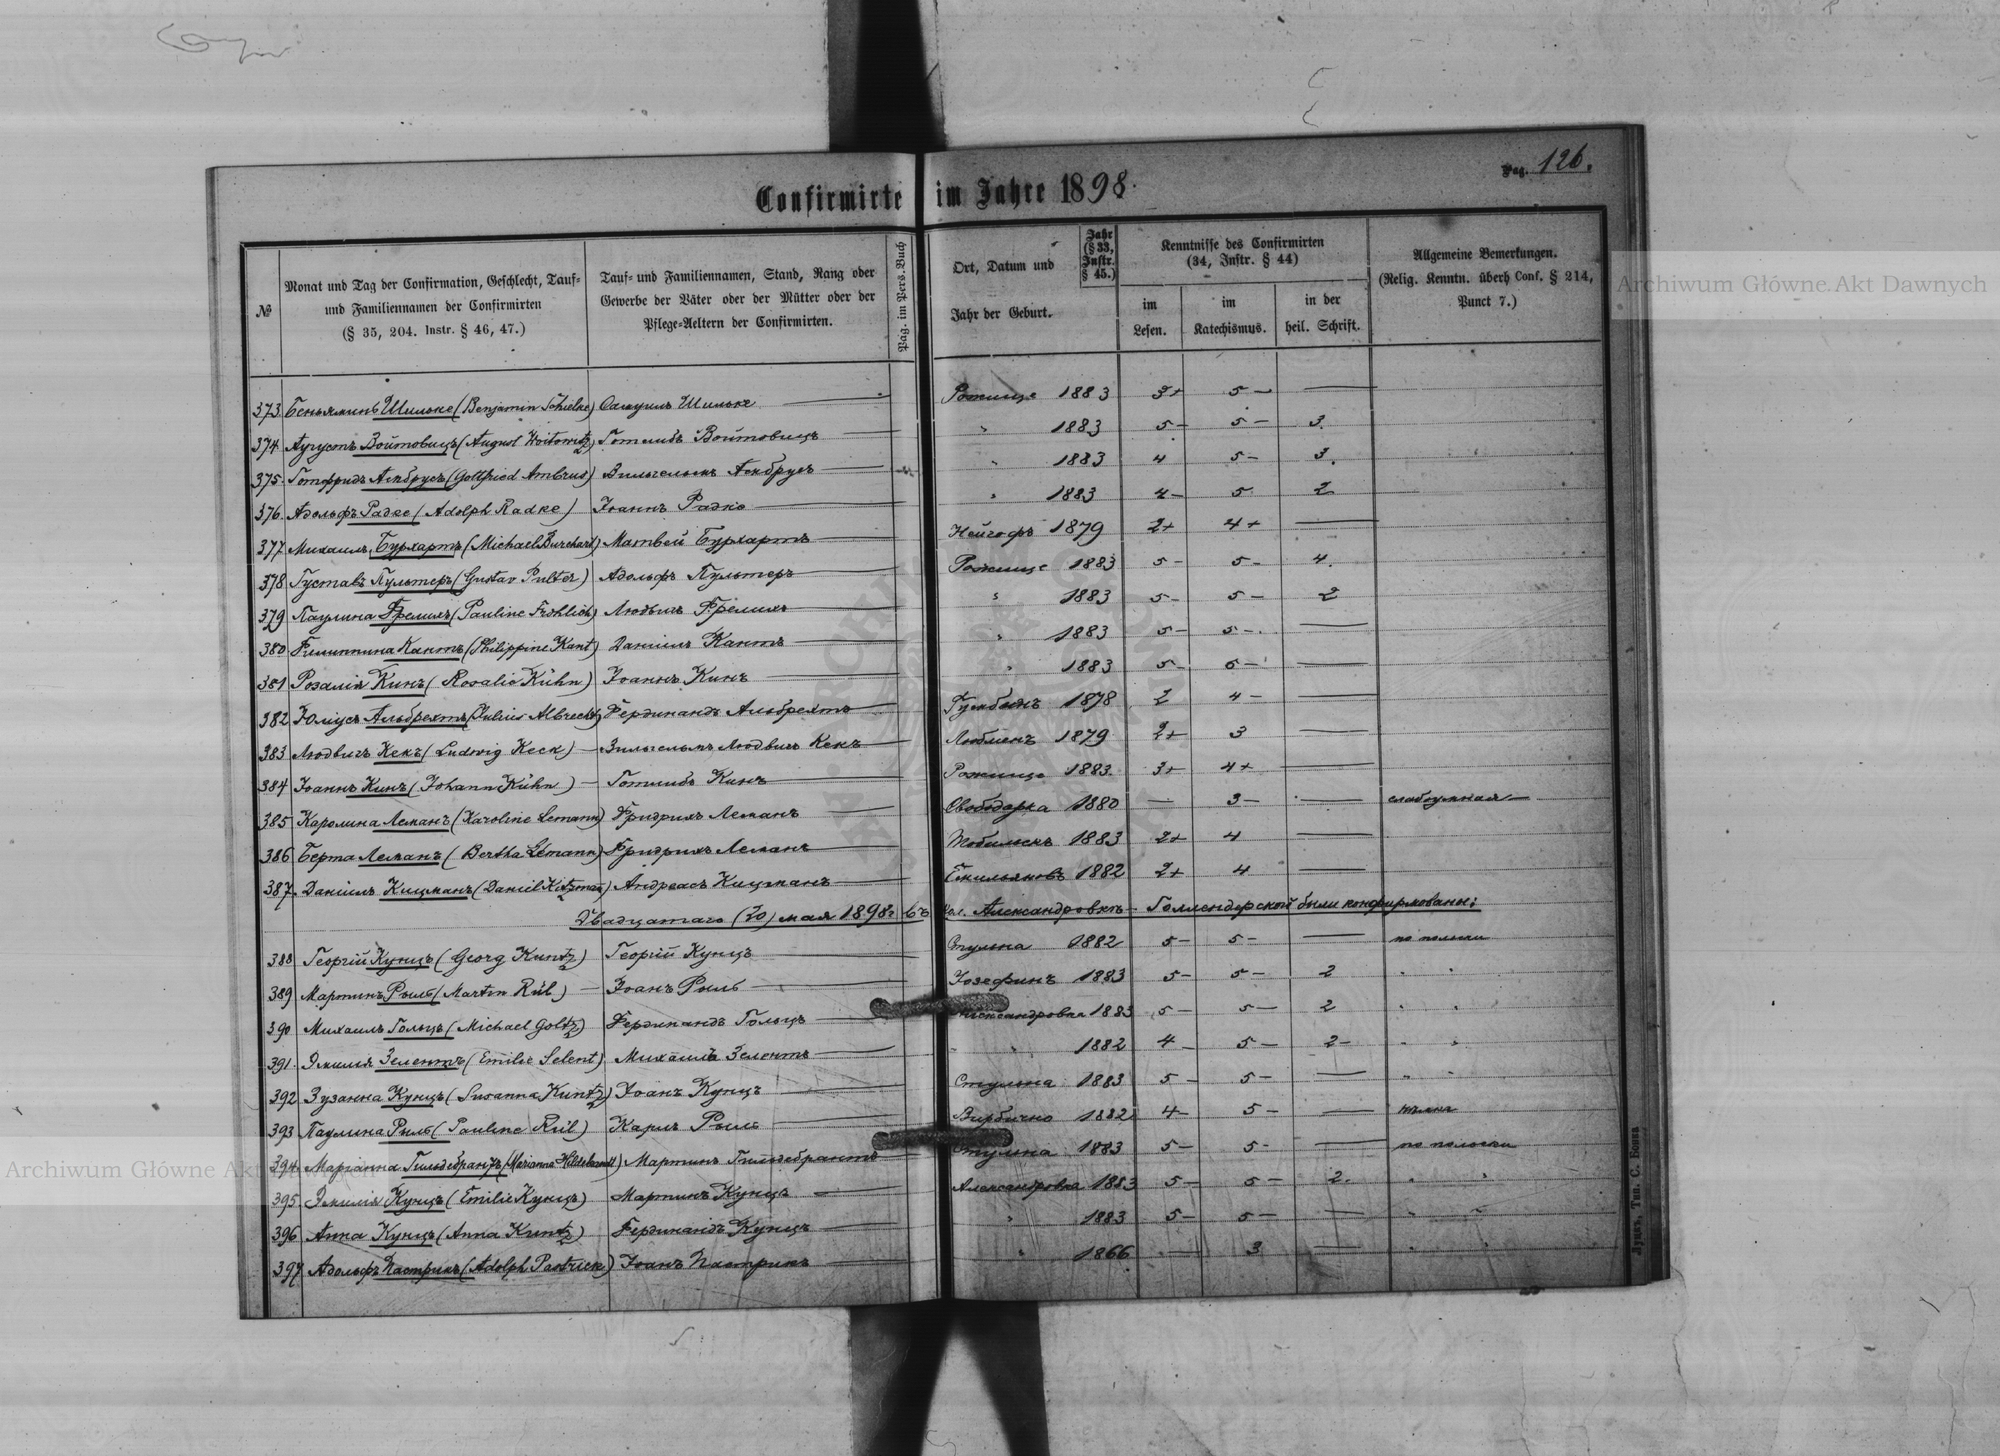 Pag. 126.
Confirmirte im Jahre 1898.
№
Monat und Tag der Confirmation, Geschlecht, Tauf-
und Familiennamen der Confirmirten
(§ 35, 204. Instr. § 46, 47.)
Tauf- und Familiennamen, Stand, Rang oder
Gewerbe der Väter oder der Mütter oder der
Pflege-Aeltern der Confirmirten.
Pag. im Pers.-Buch
Ort, Datum und
Jahr der Geburt.
Jahr
(§ 33,
Instr.
§ 45.)
Kenntnisse des Confirmirten
(34, Instr. § 44)
im
Lesen.
im
Katechismus.
in der
heil. Schrift.
Allgemeine Bemerkungen.
(Relig. Kenntn. überh Conf. § 214,
Punct 7.)
Archiwum Główne Akt Dawnych
373 Беньяминъ Шильке (Benjamin Schielke) Самуилъ Шильке — Рожище 1883 3+ 5 — —
374 Аугустъ Войтовицъ (August Woitowitz) Готлибъ Войтовицъ — " 1883 5 — 5 — 3.
375. Готфридъ Амбрусъ (Gottfried Ambrus) Вильгельмъ Амбрусъ — " 1883 4 5 — 3.
376. Адольфъ Радке (Adolph Radke) Іоаннъ Радке — " 1883 4 — 5 2
377 Михаилъ Бурхартъ (Michael Burchart) Матвей Бурхартъ — Нейгофъ 1879 2+ 4+ —
378 Густавъ Пультеръ (Gustav Pulter) Адольфъ Пультеръ — Рожище 1883 5 — 5 — 4.
379 Паулина Фрелихъ (Pauline Fröhlich) Людвигъ Фрелихъ — " 1883 5 — 5 — 2
380 Филиппина Кантъ (Philippine Kant) Даніилъ Кантъ — " 1883 5 — 5 — —
381 Розалія Кинъ (Rosalie Kühn) Іоаннъ Кинъ — " 1883 5 — 5 — —
382 Юліусъ Альбрехтъ (Julius Albrecht) Фердинандъ Альбрехтъ — 1878 2 4 — —
383 Людвигъ Кекъ (Ludwig Keck) — Вильгельмъ Людвигъ Кекъ — 1879 2+ 3 —
384 Іоаннъ Кинъ (Johann Kühn) — Готлибъ Кинъ — Рожище 1883. 3+ 4+ —
385 Каролина Леманъ (Karoline Lemann) Фридрихъ Леманъ — Свободарка 1880 — 3 — — слабоумная —
386 Берта Леманъ (Bertha Lemann) Фридрихъ Леманъ — 1883 2+ 4 —
387. Даніилъ Кицманъ (Daniel Kitzman) Андреасъ Кицманъ — Емильяновъ 1882 2+ 4 —
Двадцатаго (20) мая 1898 г. въ Кол. Александровкѣ — Голлендерской были конфирмованы:
388 Георгій Кунцъ (Georg Kuntz) Георгій Кунцъ — Стульна 1882 5 — 5 — — по польски
389 Мартинъ Рыль (Martin Rül) — Іоанъ Рыль — Іозефинъ 1883 5 — 5 — 2 " "
390 Михаилъ Гольцъ (Michael Goltz) Фердинандъ Гольцъ — Александровка 1883 5 — 5 — 2 " "
391. Эмилія Зелентъ (Emilie Selent) Михаилъ Зелентъ — " " 1882 4 — 5 — 2 — " "
392 Зузанна Кунцъ (Susanna Kuntz) Іоанъ Кунцъ — Стульна 1883 5 — 5 — — " "
393 Паулина Рыль (Pauline Rül) Карлъ Рыль — Вирбично 1882 4 — 5 — —
394. Маріанна Гильдебрантъ (Marianna Hildebrandt) Мартинъ Гильдебрантъ — Стульна 1883 5 — 5 — — по польски
395. Эмилія Кунцъ (Emilie Кунцъ) Мартинъ Кунцъ — Александровка 1883 5 — 5 — 2. " "
396 Анна Кунцъ (Anna Kuntz) Фердинандъ Кунцъ — " 1883 5 — 5 — — " "
397 Адольфъ Пастрикъ (Adolph Pastrick) Іоанъ Пастрикъ — " 1866 — 3 — " "
Луцкъ, Тип. С. Бонка
Archiwum Główne Akt